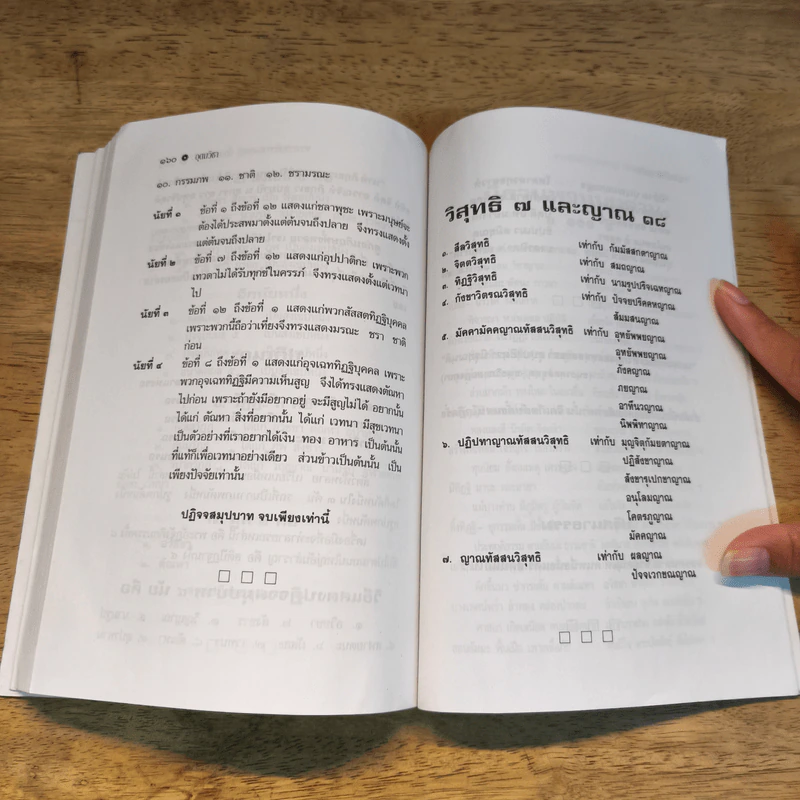 ๑๖๐ อุตมวิธา
๑๐. กรรมภพ ๑๑. ชาติ ๑๒. ชรามรณะ
นัยที่ ๑ ข้อที่ ๑ ถึงข้อที่ ๑๒ แสดงแก่ชลาพุชะ เพราะมนุษย์จะ
ต้องได้ประสพมาตั้งแต่ต้นจนถึงปลาย จึงทรงแสดงตั้ง
แต่ต้นจนถึงปลาย
นัยที่ ๒ ข้อที่ ๗ ถึงข้อที่ ๑๒ แสดงแก่อุปปาติกะ เพราะพวก
เทวดาไม่ได้รับทุกข์ในครรภ์ จึงทรงแสดงตั้งแต่เวทนา
ไป
นัยที่ ๓ ข้อที่ ๑๒ ถึงข้อที่ ๑ แสดงแก่พวกสัสสตทิฏฐิบุคคล
เพราะพวกนี้ถือว่าเที่ยงจึงทรงแสดงมรณะ ชรา ชาติ
ก่อน
นัยที่ ๔ ข้อที่ ๘ ถึงข้อที่ ๑ แสดงแก่อุจเฉททิฏฐิบุคคล เพราะ
พวกอุจเฉททิฏฐิมีความเห็นสูญ จึงได้ทรงแสดงตัณหา
ไปก่อน เพราะถ้ายังมีอยากอยู่ จะมีสูญไม่ได้ อยากนั้น
ได้แก่ ตัณหา สิ่งที่อยากนั้น ได้แก่ เวทนา มีสุขเวทนา
เป็นตัวอย่างที่เราอยากได้เงิน ทอง อาหาร เป็นต้นนั้น
ที่แท้ก็เพื่อเวทนาอย่างเดียว ส่วนข้าวเป็นต้นนั้น เป็น
เพียงปัจจัยเท่านั้น
ปฏิจจสมุปบาท จบเพียงเท่านี้
วิสุทธิ ๗ และญาณ ๑๘
๑. สีลวิสุทธิ เท่ากับ กัมมัสสกตาญาณ
๒. จิตตวิสุทธิ เท่ากับ สมถญาณ
๓. ทิฏฐิวิสุทธิ เท่ากับ นามรูปปริจเฉทญาณ
๔. กังขาวิตรณวิสุทธิ เท่ากับ ปัจจยปริคคหญาณ
สัมมสนญาณ
๕. มัคคามัคคญาณทัสสนวิสุทธิ เท่ากับ อุทยัพพยญาณ
อุทยัพพยญาณ
ภังคญาณ
ภยญาณ
อาทีนวญาณ
นิพพิทาญาณ
๖. ปฏิปทาญาณทัสสนวิสุทธิ เท่ากับ มุญจิตุกัมยตาญาณ
ปฏิสังขาญาณ
สังขารุเปกขาญาณ
อนุโลมญาณ
โคตรภูญาณ
มัคคญาณ
๗. ญาณทัสสนวิสุทธิ เท่ากับ ผลญาณ
ปัจจเวกขณญาณ